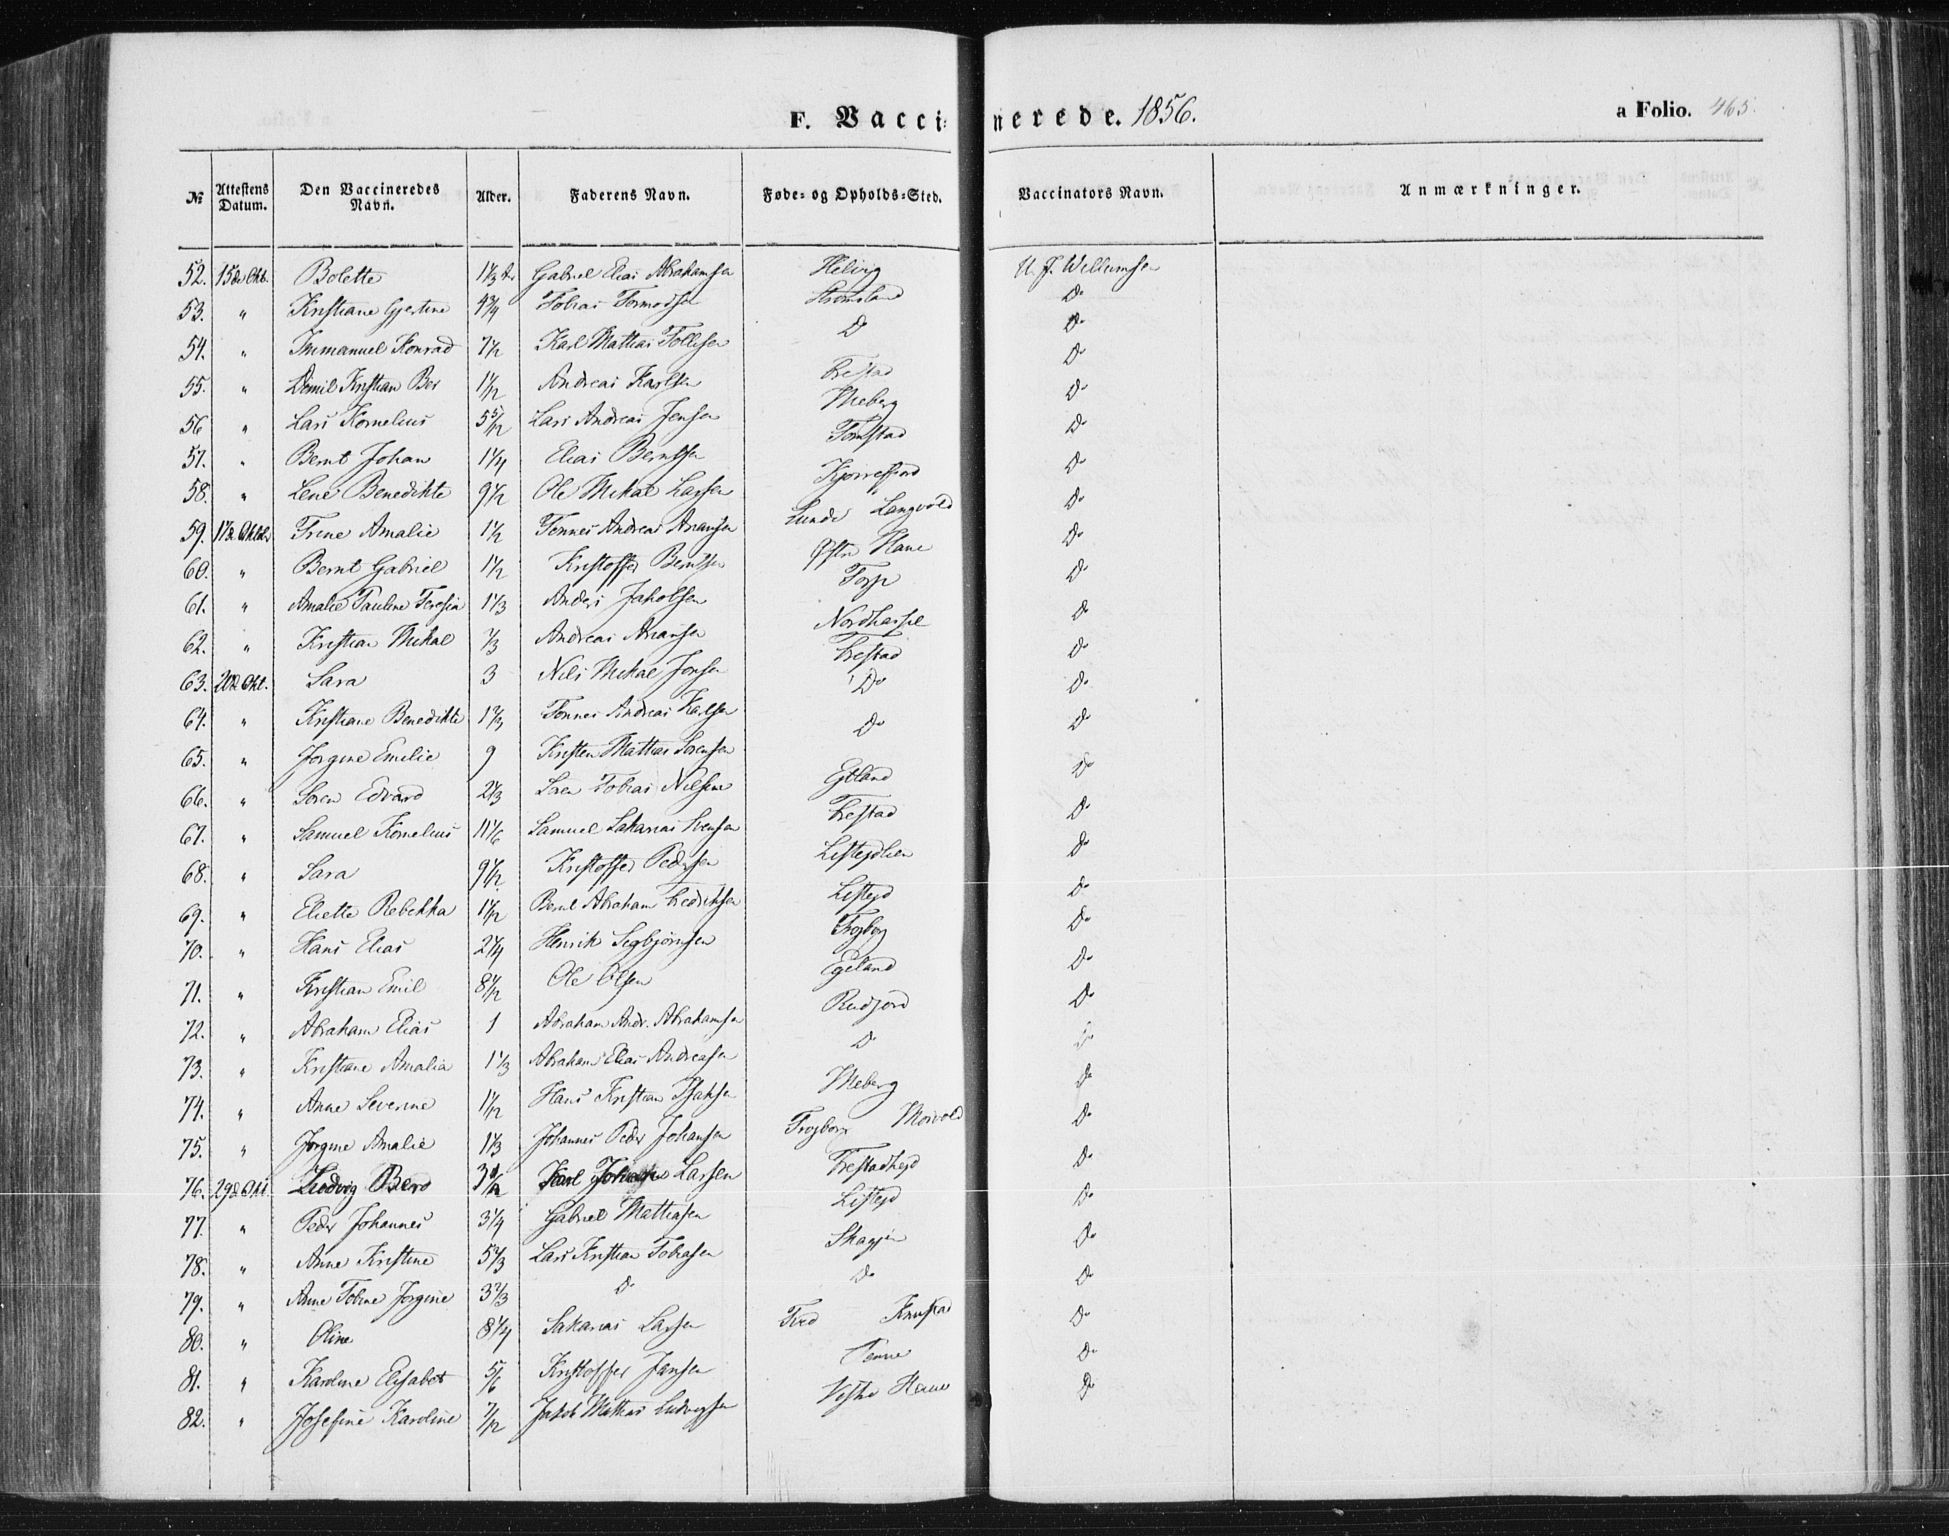 F. Vaccinerede. 1856. a Folio. 465.
№ Attestens Datum. Den Vaccineredes Navn. Alder. Faderens Navn. Føde- og Opholds-Sted. Vaccinators Navn. Anmærkninger.
52. 15de Okt. Bolette 1 1/3 Gabriel Elias Abrahamsen Helvig U. J. Willumsen
53. " Kristiane Gjertine 4 3/4 Tobias Tormodsen Strømsland Do
54. " Immanuel Konrad 7 1/2 Karl Mathias Tollefsen Do Do
55. " Kristian Ber 1 1/2 Andreas Karlsen Frestad Do
56 " Lars Kornelius 5 5/12 Lars Andreas Jensen Meberg Do
57. " Bernt Johan 1 1/4 Elias Berntsen Tomstad Do
58. " Lene Benedikte 9 1/2 Ole Mikal Larsen Kjørrefjord Do
59. 17de Oktbr Trine Amalie 1 1/2 Tønnes Andreas Ananisen Lunde Langvold Do
60. " Bernt Gabriel 1 1/2 Kristoffer Berntsen Østre Haue Do
61. " Amalie Pauline Teresia 1 1/3 Anders Jakobsen Torp Do
62. " Kristian Mikal 1/3 Andreas Ananisen Nordhassel Do
63. 20de Okt. Sara 3 Nils Mikal Jensen Frestad Do
64. " Kristiane Benedikte 1 2/3 Tønnes Andreas Karlsen Do Do
65. " Jørgine Emilie 9 Kristen Mathias Sørensen Do Do
66. " Søren Edvard 2 1/3 Søren Tobias Nilsen Egeland Do
67. " Samuel Kornelius 11 1/6 Samuel Sakarias Svensen Frestad Do
68. " Sara 9 1/2 Kristoffer Pedersen Listejdlien Do
69. " Eliette Rebekka 1 1/2 Bernt Abraham Fredriksen Listejd Do
70. " Hans Elias 2 1/4 Henrik Segbjørnsen Frøjborg Do
71. " Kristian Emil 8 1/2 Ole Olsen Egeland Do
72. " Abraham Elias 1 Abraham Andr. Abrahamsen Rudjord Do
73. " Kristiane Amalia 1 1/3 Abraham Elias Andreasen Do Do
74. " Anne Severine 1 1/2 Hans Kristian Isaksen Meberg Do
75. " Jørgine Amalie 1 1/3 Johannes Peder Johansen Frøjborg Do
76. 29de Okt Ludvig Bero 3 1/2 Karl Larsen Frestadhejd Do
77. " Peder Johannes 3 1/4 Gabriel Mathiasen Listejd Do
78. " Anne Kristine 5 2/3 Lars Kristian Tobiasen Skagjen Do
79. " Anne Tobine Jørgine 3 2/3 Do Do Do
80. " Oline 8 1/4 Sakarias Larsen Do
81. " Karoline Elisabet 5/6 Kristoffer Jansen Penne Do
82. " Josefine Karoline 7/12 Jakob Mathias Ludvigsen Vestre Haue Do